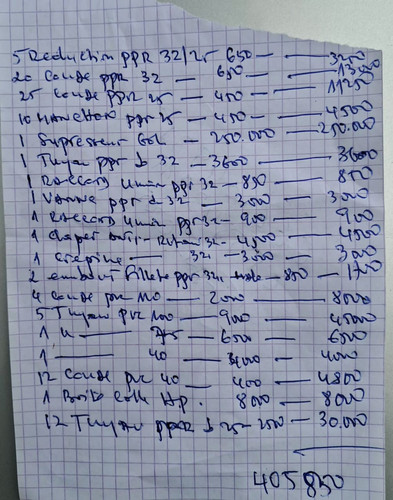 5 Reduction ppR 32/25 650 — 3250
20 Coude ppr 32 — 650 — 13000
25 Coude ppr 25 — 450 — 11250
10 Manchon ppr 25 — 450 — 4500
1 Supresseur 60L — 250.000 — 250.000
1 Tuyau ppr d 32 — 3600 — 3600
1 Raccord Union ppr 32 — 850 — 850
1 Vanne ppr d 32 — 3000 — 3000
1 Raccord Union ppr 32 — 900 — 900
1 Clapet Anti-Retour 32 — 4500 — 4500
1 Crepine — 32 — 3000 — 3000
2 embout filleté ppr 32 — 850 — 1700
4 Coude pvc 110 — 2000 — 8000
5 Tuyau pvc 100 — 9000 — 45000
1 — 6500 — 6500
1 — 40 — 4000
12 Coude pvc 40 — 400 — 4800
1 Boite Colle H.p. 8000 — 8000
12 Tuyau ppR d 25 — 2500 — 30.000
405 850